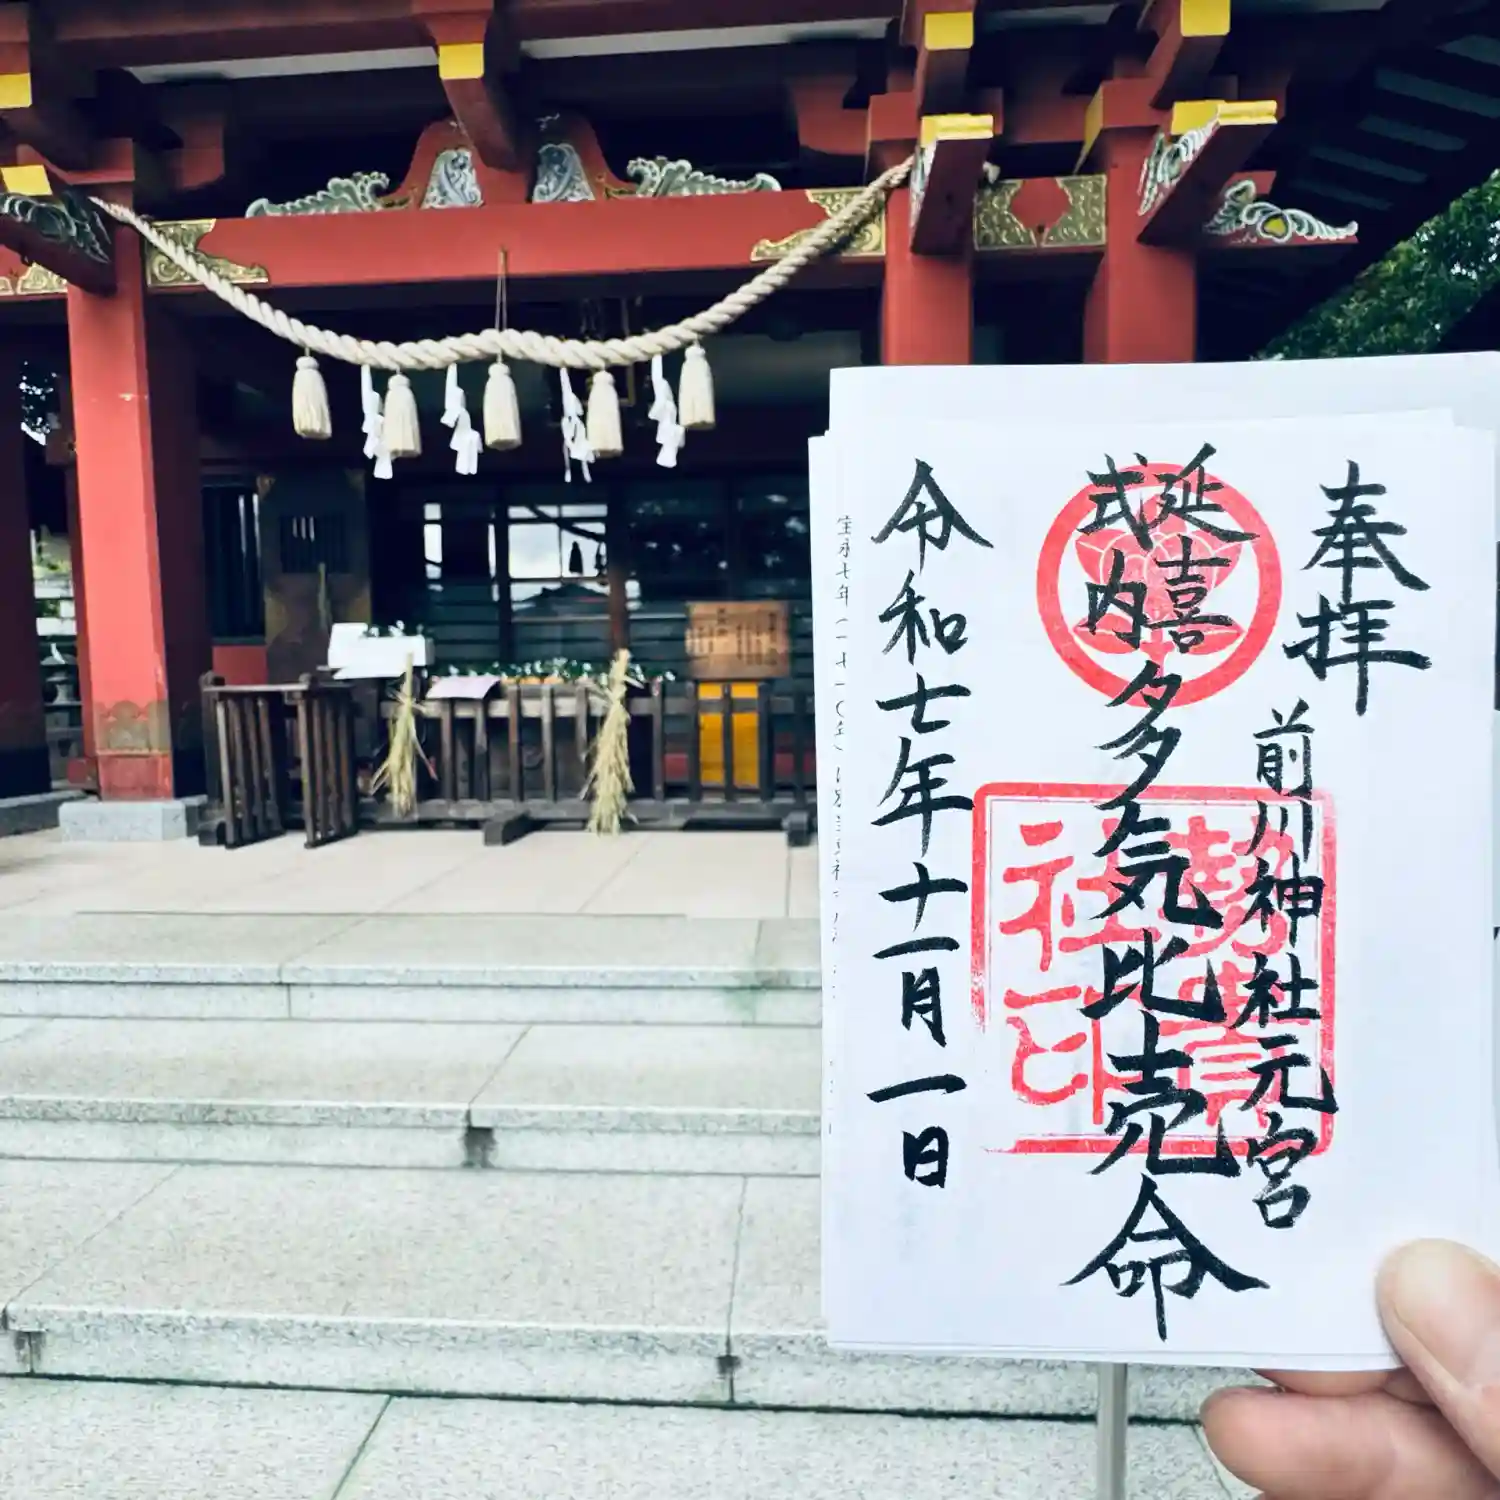 奉拝
前川神社元宮
延喜
式内
多気比売命
令和七年十一月一日
社印